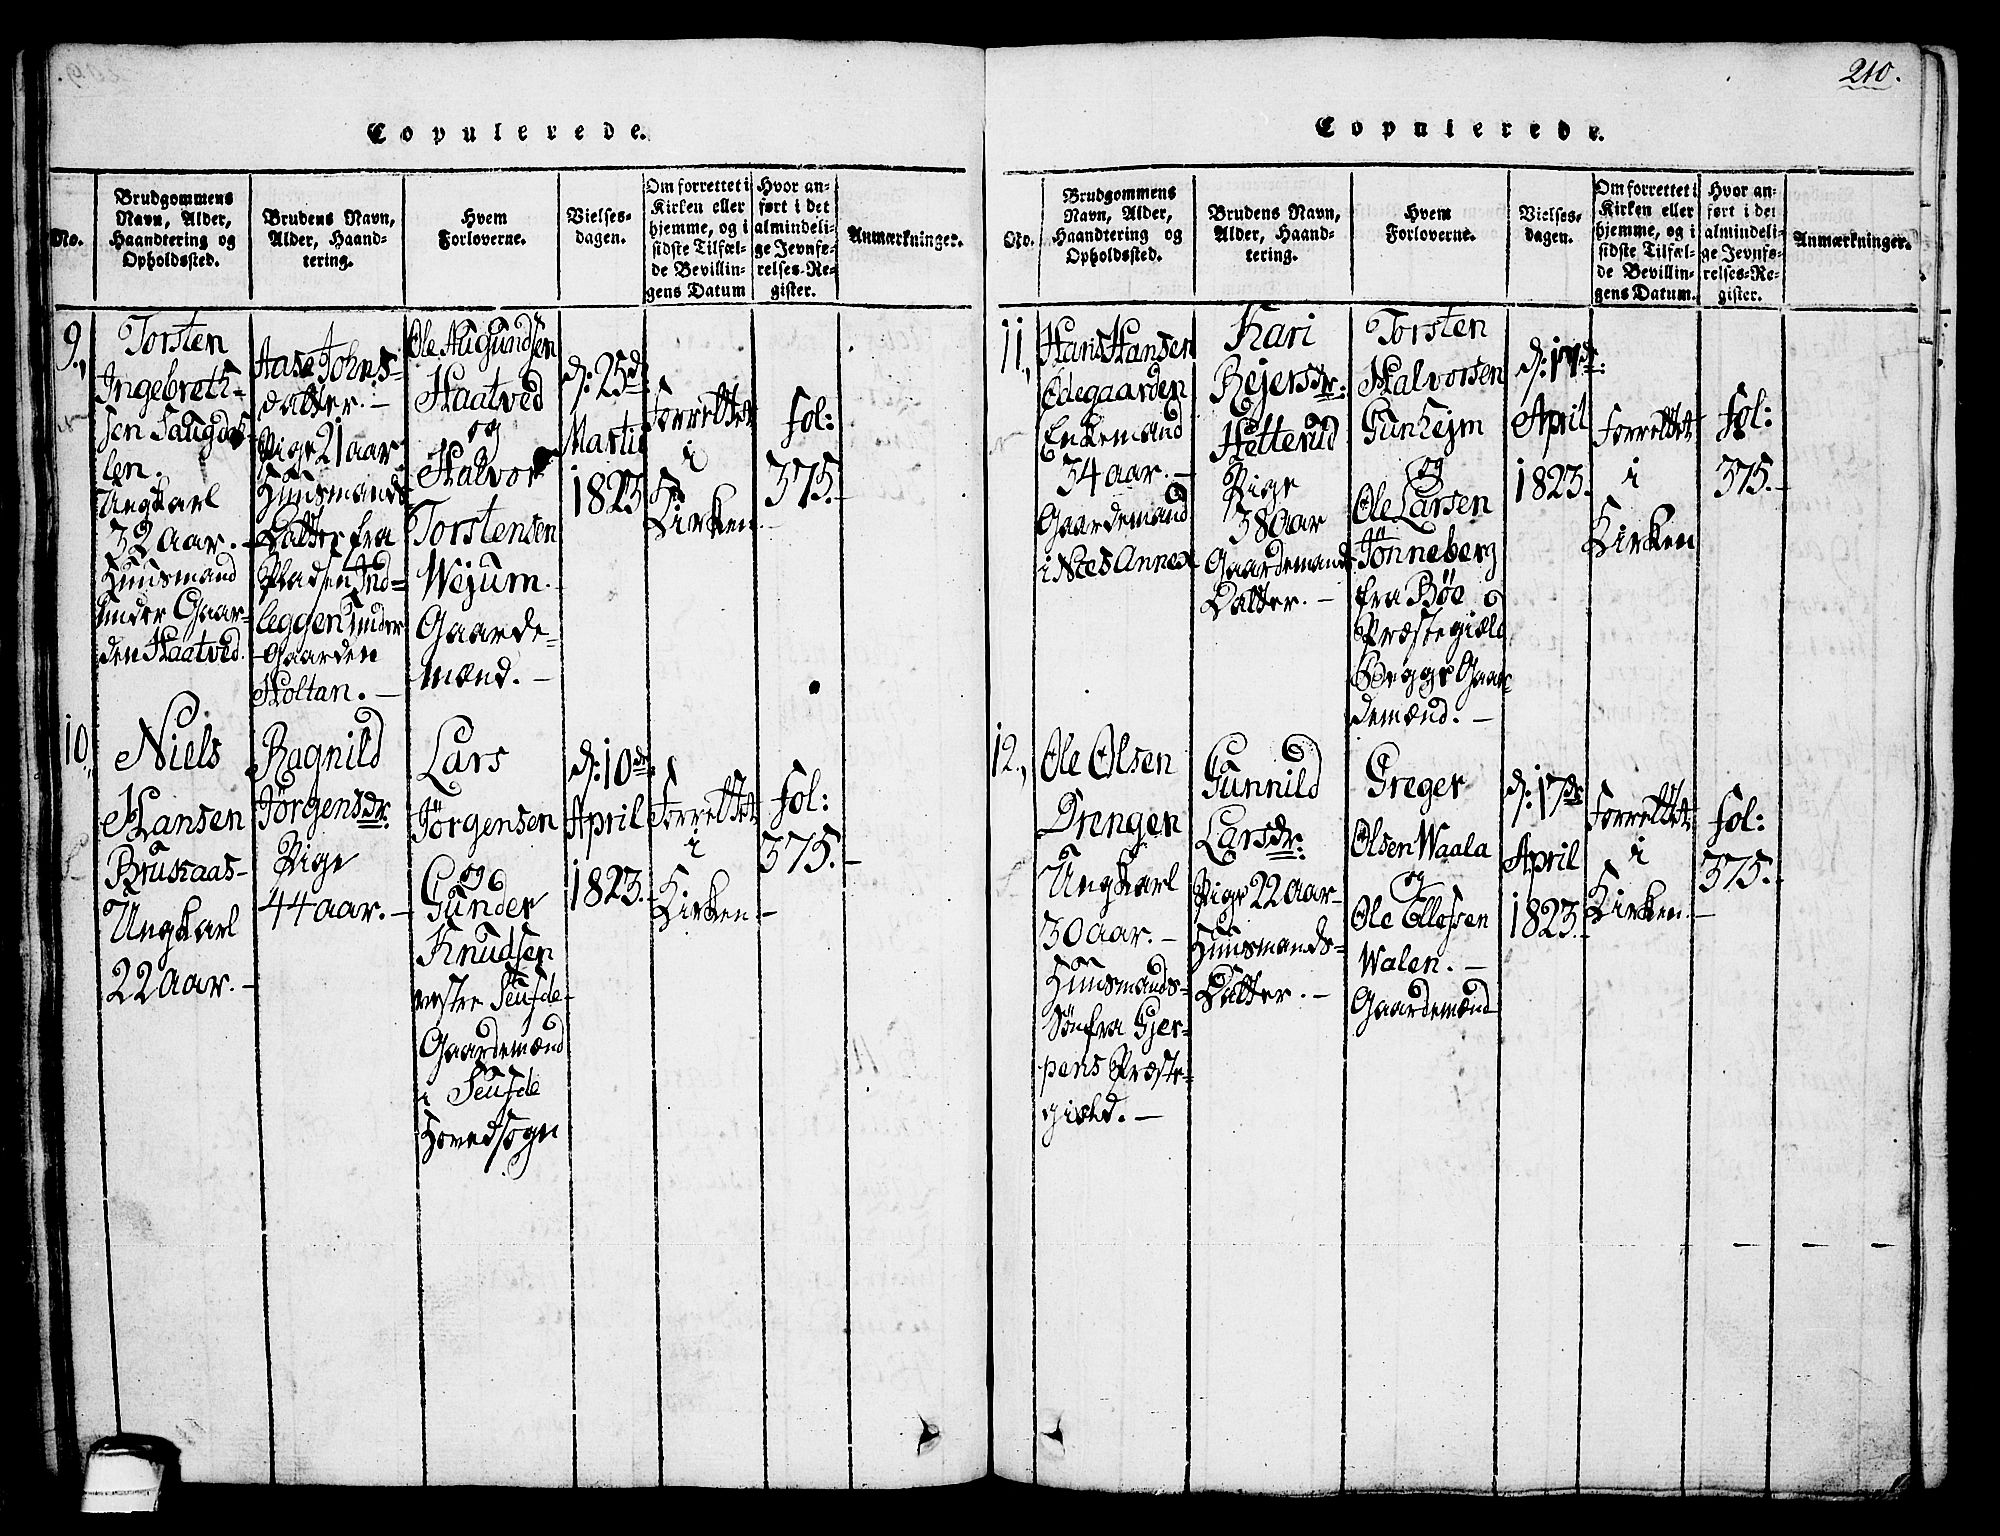 210.
Copulerede.
No.
Brudgommens
Navn, Alder,
Haandtering og
Opholdssted.
Brudens Navn,
Alder, Haand-
tering.
Hvem
Forloverne.
Vielses-
dagen.
Om forrettet i
Kirken eller
hjemme, og i
sidste Tilfæl-
de Bevillin-
gens Datum
Hvor an-
ført i det
almindeli-
ge Jevnfø-
relses-Re-
gister.
Anmærkninger.
9.,
Torsten
Ingebreth-
sen
len.
Ungkarl
32 aar. -
Huusmand
under Gaar-
den Haatved.
Aase Johns-
datter. -
Pige 21 aar
Huusmands
Datter fra
Pladsen Ind-
leggen under
Gaarden
Holtan. -
Ole Augundsen
Haatved
og
Halvor
Torstensen
Wejum.
Gaarde-
mænd. -
d: 25de
Martii
1823
Forrettet
i
Kirken. -
fol:
375. -
10.,
Niels
Hansen
Bruskaas-
Ungkarl
22 aar. -
Ragnild
Jörgensdr.
Pige
44 aar. -
Lars
Jörgensen
og
Gunder
Knudsen
vestre Seufde-
Gaardemænd
i Seufde
Hovedsogn
d: 10de
April
1823. -
Forrettet
i
Kirken. -
fol:
375. -
Copulerede.
No.
Brudgommens
Navn, Alder,
Haandtering og
Opholdssted.
Brudens Navn,
Alder, Haand-
tering.
Hvem
Forloverne.
Vielses-
dagen.
Om forrettet i
Kirken eller
hjemme, og i
sidste Tilfæl-
de Bevillin-
gens Datum.
Hvor an-
ført i det
almindeli-
ge Jevnfø-
relses-Re-
gister.
Anmærkninger.
11.,
Hans Hansen
Ødegaarden
Enkemand
34 aar. -
Gaardemand
i Nees Annex
Kari
Rejersdr.
Hetterud
Pige
38 aar
Gaardemands
Datter. -
Torsten
Halvorsen
Gunhejm
og
Ole Larsen
Tönneberg
fra Bøe
Præstegiæld
Begge Gaar
demænd. -
d: 17de
April
1823.
Forrettet
i
Kirken
fol:
375. -
12.,
Ole Olsen
Drengen
Ungkarl
30 aar. -
Huusmands-
Sön fra Gjer-
pens Præste-
giæld. -
Gunnild
Larsdr.
Pige 22 aar -
Huusmands-
Datter. -
Greger
Olsen Waala
og
Ole Ellefsen
Walen. -
Gaardemænd
d: 17de
April
1823. -
Forrettet
i
Kirken. -
fol:
375. -